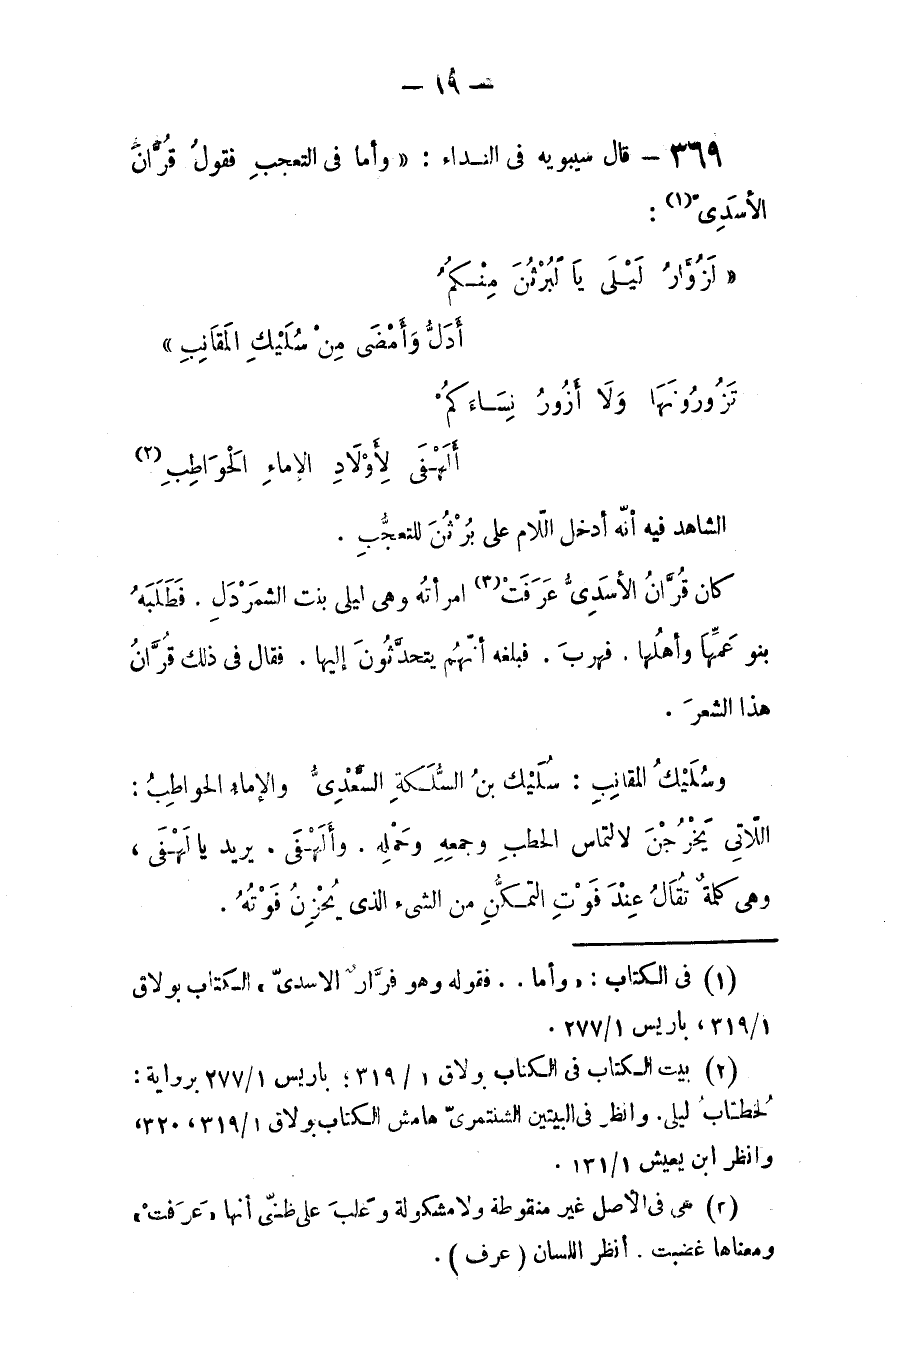 — ١٩ —
٣٦٩ — قال سيبويه فى النداء : « وأما فى التعجبِ فقولُ قُرَّانَ
الأسَدِىّ(١) :
« لَزُوَّارُ لَيْلَى يَا لَبُرْثُنَ مِنْكُمُ
أَدَلُّ وَأَمْضَى مِنْ سُلَيْكِ المَقَانِبِ »
تَزُورُونَهَا وَلَا أَزُورُ نِسَاءَكُمْ
أَلَهْفَى لِأَوْلَادِ الإماءِ الحَوَاطِبِ(٢)
الشاهد فيه أنّه أدخل اللّام على بُرْثُنَ للتعجُّبِ .
كان قُرَّانُ الأسَدِىُّ عَرَفَتْ(٣) امرأتُه وهى ليلى بنت الشمرْدَلِ . فَطَلَبَهُ
بنو عَمِّهَا وأهلُها . فهربَ . فبلغه أنّهُم يتحدَّثُونَ إليها . فقال فى ذلك قُرَّانُ
هذا الشعرَ .
وسُلَيْكُ المقانِبِ : سُلَيْك بنُ السُّلَكَةِ السَّعْدِىُّ والإماءُ الحواطبُ :
اللاّتِى يَخْرُجْنَ لالتماس الحطبِ وجمعِهِ وحَمْلِه . وأَلَهْفَى . يريد يا لَهْفَى ،
وهى كلمةٌ تُقَالُ عِنْدَ فَوْتِ التمكنُّ من الشىء الذى يُحْزِنُ فَوْتُهُ .
(١) فى الكتاب : « وأما . . فقوله وهو فرَّارٌ الاسدىّ » الكتاب بولاق
٣١٩/١ ، باريس ٢٧٧/١ .
(٢) بيت الكتاب فى الكتاب بولاق ١ / ٣١٩ ؛ باريس ٢٧٧/١ برواية :
لخطّابُ ليلى . وانظر فى البيتين الشنتمرىّ هامش الكتاب بولاق ٣١٩/١ ، ٣٢٠ ،
وانظر ابن يعيش ١٣١/١ .
(٣) هى فى الأصل غير منقوطة ولا مشكولة وغلبَ على ظنّى أنها « عرَفتْ »
ومعناها غضبت . أنظر اللسان ( عرف ) .